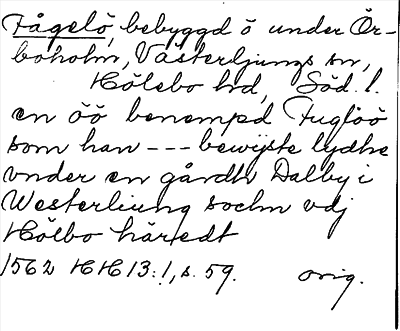 Fågelö, bebyggd ö under Ör-
boholm, Västerljungs sn,
Hölebo hd, Söd. l.
en öö benempd Fuglöö
som han --- bewijste lydhe
vnder en gårdh Dalby i
Westerliung sochn vdj
Hölbo häredt
1562 HH 13:1, s. 59. orig.